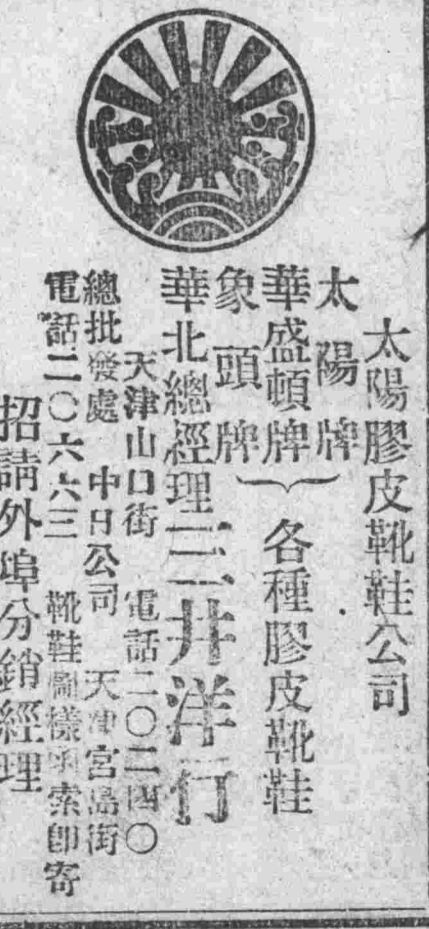 太陽膠皮靴鞋公司
太陽牌
華盛頓牌
象頭牌
各種膠皮靴鞋
華北總經理三井洋行
天津山口街 電話二〇二四〇
總批發處 中日公司 天津宮島街
電話二〇六六三 靴鞋圖樣函索即寄
招請外埠分銷經理